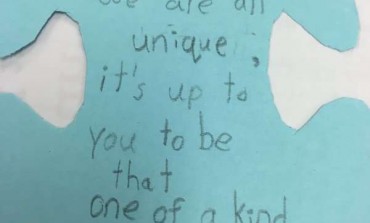 we are all
unique,
it's up to
you to be
that
one of a kind